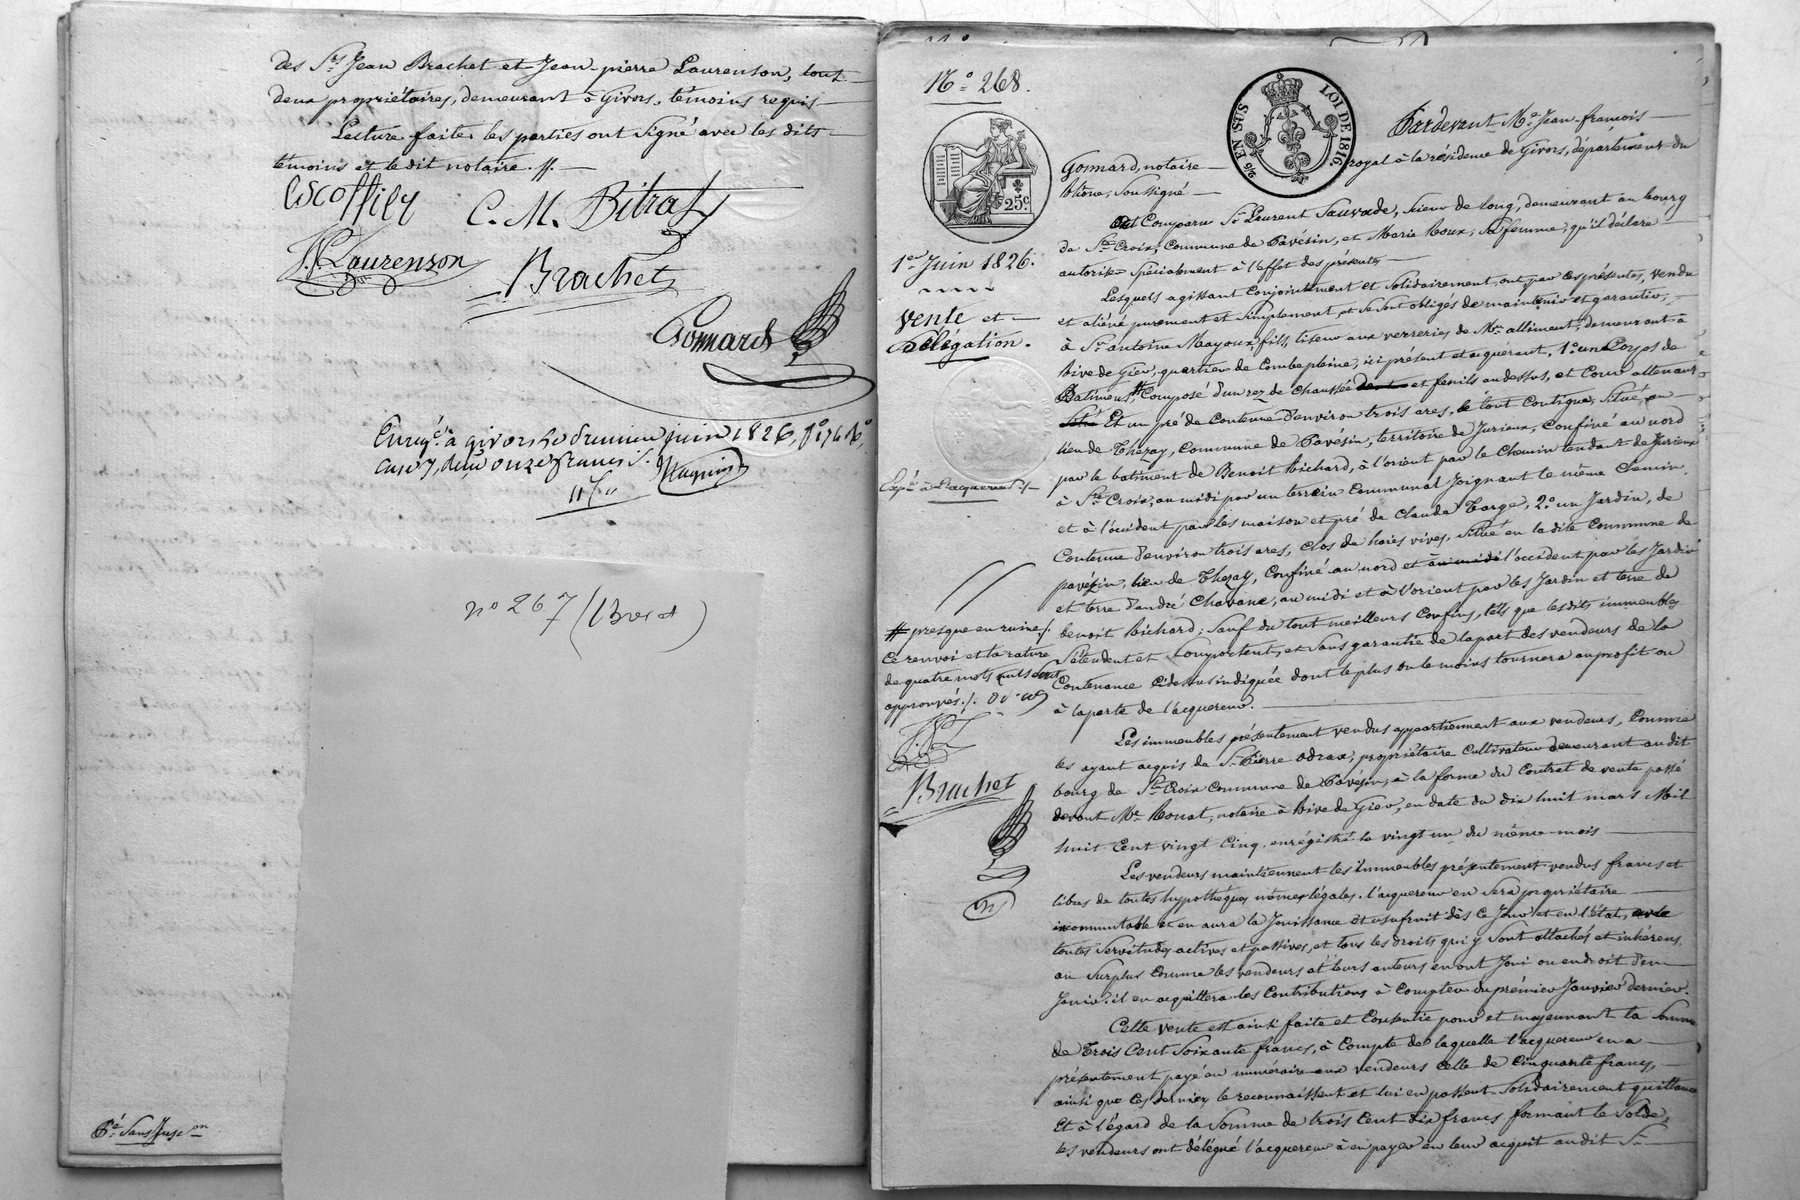 des Srs Jean Brachet et Jean-pierre Laurenson, tout
deux propriétaires, demeurant à Givors, témoins requis
Lecture faite les parties ont signé avec les dits
témoins et le dit notaire.
Escoffier
C. M. Bitrat
J. P. Laurenson
Brachet
Gonnard
Enregé. à givors le premier juin 1826, fo 176 Ro
case 7, onze francs
Magnin
no 267 (Brevet)
No 268.
25c.
2/5 EN SUS
LOI DE 1816.
1er Juin 1826.
vente et
Délégation.
# presque en ruine
ce renvoi et la rature
de quatre mots nuls sont
approuvés
Brachet
Pardevant Me Jean-françois
Gonnard, notaire royal à la résidence de Givors, département du
Rhône, soussigné
Ont Comparu Sr Laurent Sauvade, scieur de long, demeurant au bourg
de Ste Croix, Commune de Pavésin, et Marie Roux, sa femme, qu'il déclare
autoriser spécialement à l'effet des présentes
Lesquels agissant Conjointement et solidairement, ont par ces présentes, vendu
et aliéné purement et simplement, et se sont obligés de maintenir et garantir,
à Sr antoine Mayoux fils, tiseur aux verreries de Mr allimant, demeurant à
Rive de Gier, quartier de Combeplaine, ici présent et acquérant, 1o un Corps de
Batiment # Composé d'un rez de chaussée et fenils au dessus, et Cour attenant
Et un pré de Contenue d'environ trois ares, le tout Contigu, situé, au
lieu de Thezay, Commune de Pavésin, territoire de Jurieux, Confiné au nord
par le batiment de Benoit Richard, à l'orient par le Chemin tendant de Jurieux
à Ste Croix, au midi par un terrein Communal Joignant le même Chemin,
et à l'occident par les maison et pré de Claude Farge, 2o un Jardin, de
Contenue d'environ trois ares, Clos de haies vives, situé en la dite Commune de
pavésin, lieu de Thezay, Confiné au nord et au midi l'occident par les Jardin
et terre d'andré Chavane, au midi et à l'orient par les Jardin et terre de
benoit Richard; sauf du tout meilleurs Confins, tels que les dits immeubles
s'étendent et Comportent, et sans garantie de la part des vendeurs de la
Contenance Ci dessus indiquée dont le plus ou le moins tournera au profit ou
à la perte de l'acquereur.
Les immeubles présentement vendus appartiennent aux vendeurs, Comme
les ayant acquis de Sr Pierre odrax, propriétaire Cultivateur demeurant au dit
bourg de Ste Croix Commune de Pavésin, à la forme du Contrat de vente passé
devant Me Rouat, notaire à Rive de Gier, en date du dix huit mars Mil
huit Cent vingt Cinq, enrégistré le vingt un du même mois
Les vendeurs maintiennent les immeubles présentement vendus francs et
libres de toutes hypothèques mêmes légales. l'acquereur en sera propriétaire
incommutable et en aura la Jouissance et usufruit dès ce Jour et en l'état, avec
toutes servitudes actives et passives, et tous les droits qui y sont attachés et inhérens,
au surplus Comme les vendeurs et leurs auteurs en ont Joui ou en droit d'en
Jouir. il en acquittera les Contributions à Compter du prémier Janvier dernier.
Cette vente est ainsi faite et Consentie pour et moyennant la somme
de Trois Cent Soixante francs, à Compte de laquelle l'acquereur en a
présentement payé en numéraire aux vendeurs Celle de Cinquante francs,
ainsi que Ces derniers le reconnaissent et lui en passent solidairement quittance
Et à l'égard de la Somme de trois Cent dix francs formant le solde,
les vendeurs ont délégué l'acquereur à en payer en leur acquit au dit Sr